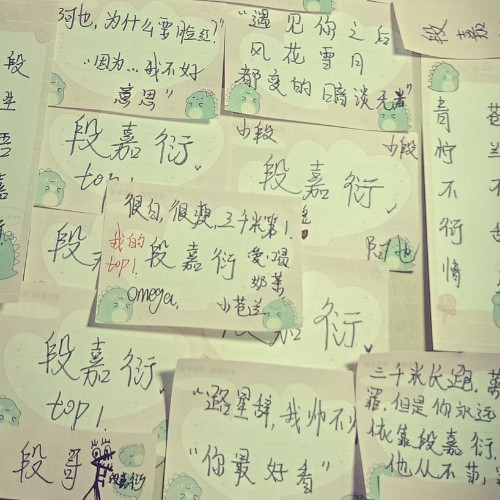 阿也，为什么要脸红？
"因为...我不好
意思"
"遇见你之后
风花雪月
都变的暗淡无光"
段嘉
段
青
柠
不
衍
情
小段
小段
段嘉衍
top1
段嘉衍
阿也
很白，很瘦，三千米第1.
我的
top1.
段嘉衍
爱喝
奶茶
omega,
小苍兰
段
衍
段嘉衍
top1
"路星辞，我帅不
"你最好看"
段哥
段嘉衍
三千米长跑，
罪.但是你永远
依靠段嘉衍.
他从不